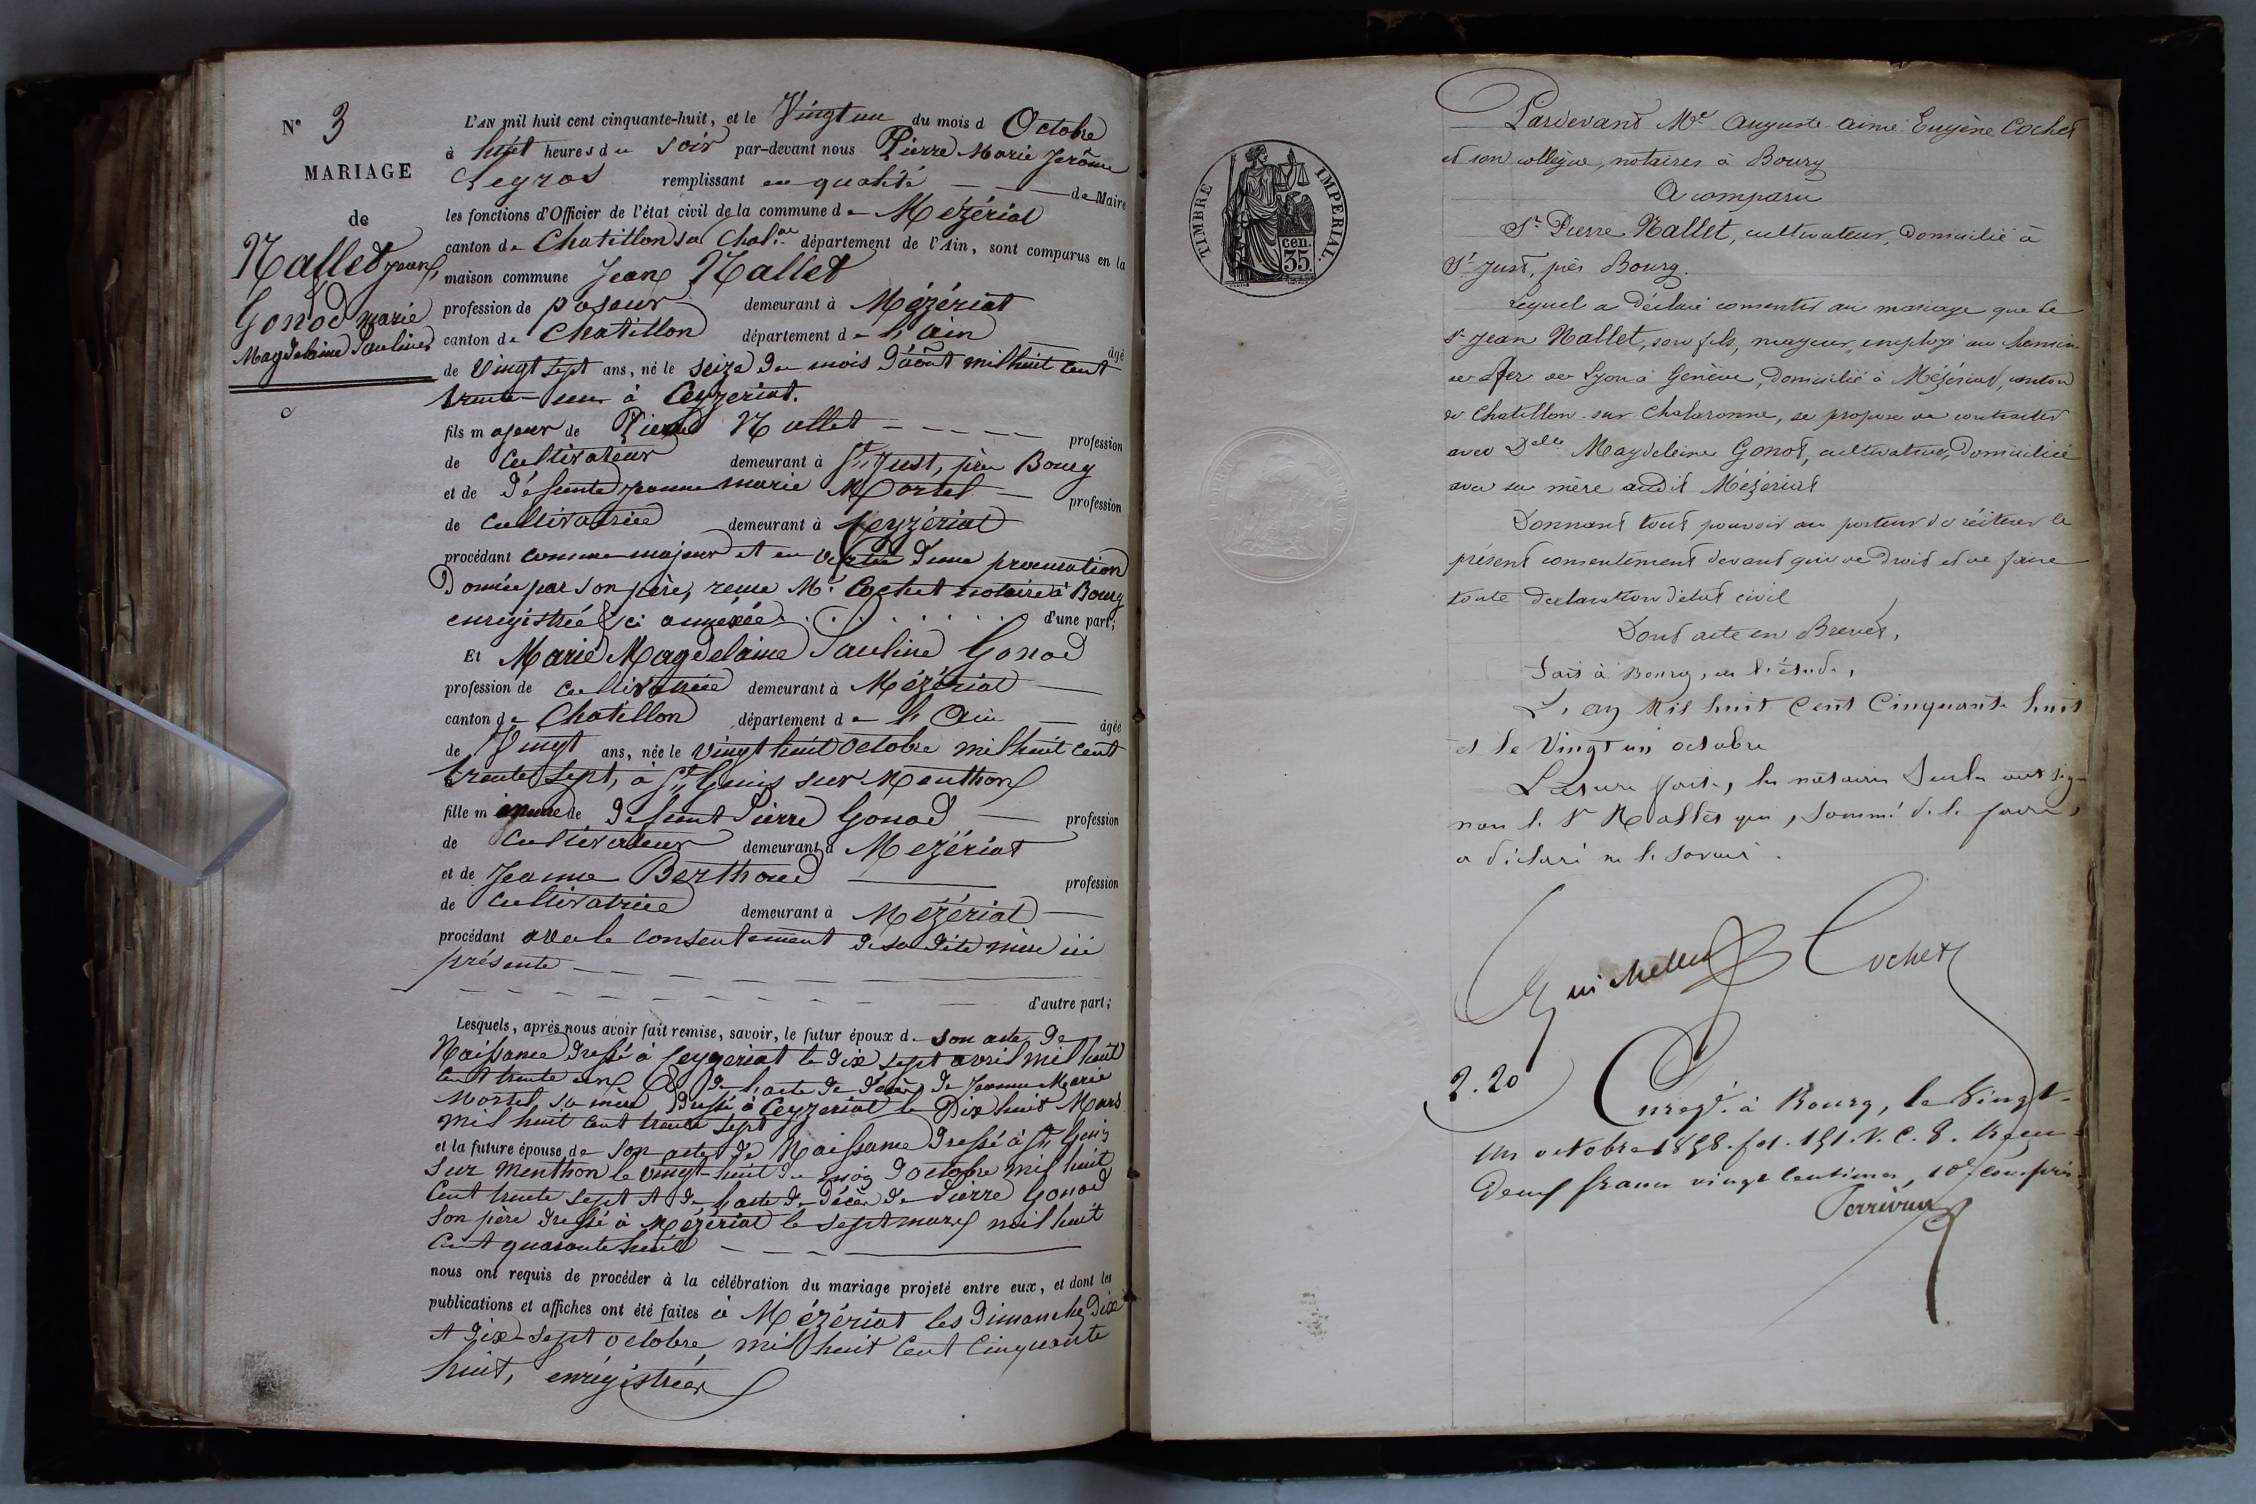 N° 3
MARIAGE
de
Nallet Jean,
Gonod Marie
Magdelaine Pauline
L'AN mil huit cent cinquante-huit, et le Vingt un du mois d Octobre
à huit heures du soir par-devant nous Pierre Marie Jérôme
remplissant en qualité — — de Maire
les fonctions d'Officier de l'état civil de la commune de Mézériat
canton de Chatillon sur Chal.ne département de l'Ain, sont comparus en la
maison commune Jean Nallet
profession de poseur demeurant à Mézériat
canton de Chatillon département de l'ain
âgé
de Vingt sept ans, né le seize du mois d'août mil huit cent
trente un à Ceyzériat.
fils majeur de Pierre Nallet — — — — profession
de Cultivateur demeurant à St Just, près Bourg
et de défunte Jeanne marie Mortel — profession
de Cultivatrice demeurant à Ceyzériat
procédant comme majeur et en vertu d'une procuration
Donnée par son père, reçue Mr. Cochet notaire à Bourg
enregistrée & ci annexée . . . . . . d'une part;
Et Marie Magdelaine Pauline Gonod
profession de cultivatrice demeurant à Mézériat —
canton de Chatillon département de l'Ain — âgée
de Vingt ans, née le vingt huit Octobre mil huit cent
trente sept, à St Genis sur Menthon
fille mineure de défunt Pierre Gonod — profession
de Cultivateur demeurant à Mézériat
et de Jeanne Berthoud — profession
de Cultivatrice demeurant à Mézériat —
procédant avec le consentement de sa dite mère ici
présente — — — — —
— — — — — — — d'autre part;
Lesquels, après nous avoir fait remise, savoir, le futur époux d. son acte de
Naissance dressé à Ceyzeriat le dix sept avril mil huit
cent trente un & de l'acte de décès de Jeanne Marie
Mortel sa mère dressé à Ceyzeriat le Dix huit Mars
mil huit cent trente sept
et la future épouse de son acte de Naissance dressé à St Genis
sur Menthon le vingt-huit du mois d'octobre mil huit
Cent trente sept et de l'acte de décès de Pierre Gonod
son père dressé à Mézériat le sept mars mil huit
Cent quarante huit — — —
nous ont requis de procéder à la célébration du mariage projeté entre eux, et dont les
publications et affiches ont été faites à Mézériat les dimanches dix
et dix-sept octobre, mil huit cent cinquante
huit, enrégistrées
TIMBRE IMPERIAL.
cen.
35.
Pardevant Me Auguste Aimé Eugène Cochet
et son collègue, notaires à Bourg
A comparu
Sr Pierre Nallet, cultivateur, domicilié à
St Just, près Bourg.
Lequel a déclaré consentir au mariage que le
Sr Jean Nallet, son fils, majeur, employé au chemin
de fer de Lyon à Genève, domicilié à Mézériat, canton
de Chatillon-sur-Chalaronne, se propose de contracter
avec Delle Magdeleine Gonod, cultivatrice, domiciliée
avec sa mère audit Mézériat
Donnant tout pouvoir au porteur de réitérer le
présent consentement devant qui de droit et de faire
toute déclaration d'état civil
Dont acte en Brevet,
Fait à Bourg, en l'étude,
L'an Mil huit Cent Cinquante huit
et le Vingt un octobre
Lecture faite, les notaires Seuls ont signé
non le Sr Nallet qui, sommé de le faire,
a déclaré ne le savoir.
Cochet
2.20
Enregé. à Bourg, le Vingt-
un octobre 1858. fol. 151. V. C. 8. Reçu
deux francs vingt centimes, 10e compris